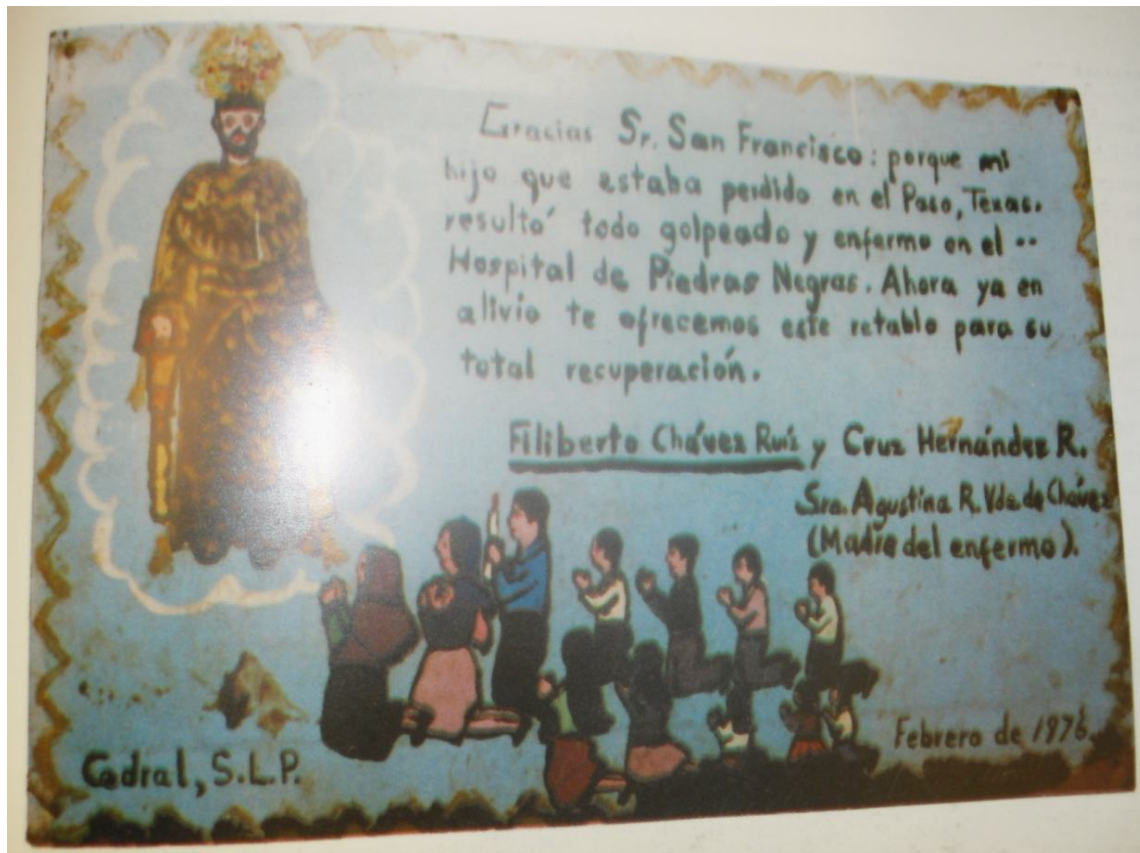 Gracias Sr. San Francisco: porque mi
hijo que estaba perdido en el Paso, Texas.
resultó todo golpeado y enfermo en el --
Hospital de Piedras Negras. Ahora ya en
alivio te ofrecemos este retablo para su
total recuperación.
Filiberto Chávez Ruíz y Cruz Hernández R.
Sra. Agustina R. Vda. de Chávez
(Madre del enfermo).
Febrero de 1976.
Cedral, S.L.P.